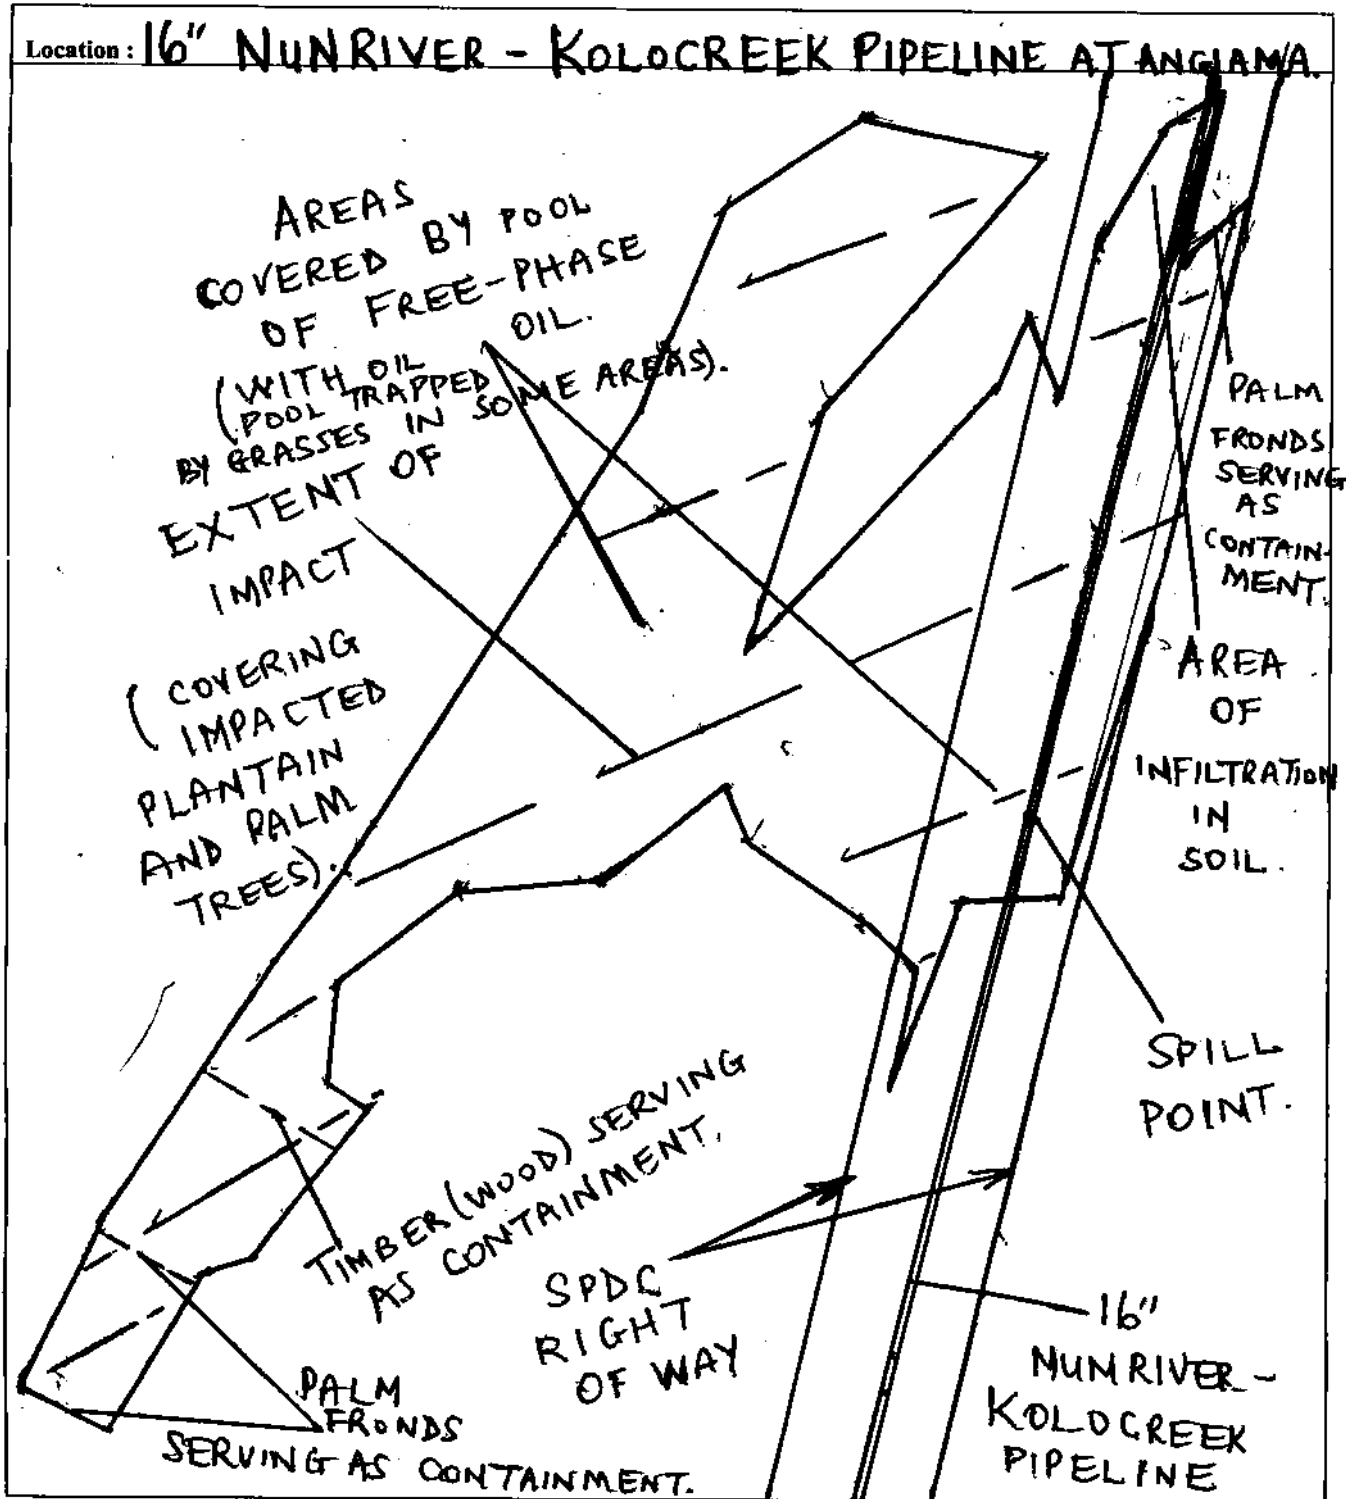 Location : 16" NUNRIVER - KOLOCREEK PIPELINE AT ANGIAMA.
AREAS
COVERED BY POOL
OF FREE-PHASE
OIL.
(WITH OIL
POOL TRAPPED
BY GRASSES IN SOME AREAS).
EXTENT OF
IMPACT
(COVERING
IMPACTED
PLANTAIN
AND PALM
TREES).
PALM
FRONDS
SERVING
AS
CONTAIN-
MENT.
AREA
OF
INFILTRATION
IN
SOIL.
SPILL
POINT.
TIMBER (WOOD) SERVING
AS CONTAINMENT.
SPDC
RIGHT
OF WAY
16"
NUMRIVER-
KOLOCREEK
PIPELINE
PALM
FRONDS
SERVING AS CONTAINMENT.